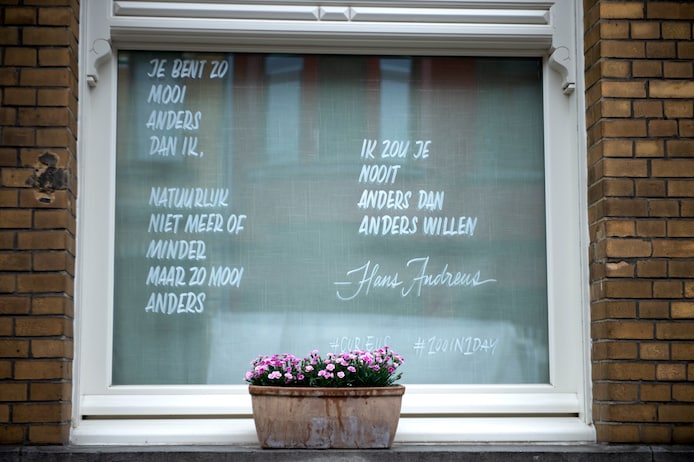 JE BENT ZO
MOOI
ANDERS
DAN IK,
NATUURLIJK
NIET MEER OF
MINDER
MAAR ZO MOOI
ANDERS
IK ZOU JE
NOOIT
ANDERS DAN
ANDERS WILLEN
—Hans Andreus—
#CUREUS #100IN1DAY